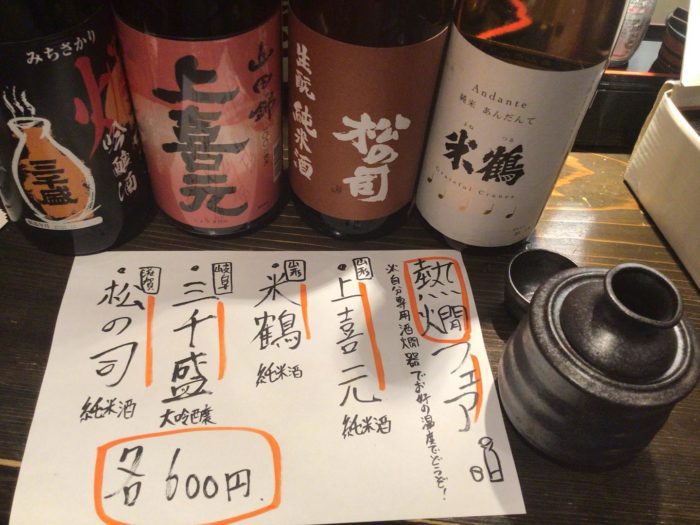 みちさかり
燗
吟醸酒
三千盛
山田錦
上喜元
生酛 純米酒
松の司
Andante
純米 あんだんて
よね つる
米鶴
Grateful Cranes
熱燗フェア
※自分専用酒燗器でお好の温度でどうぞ!
山形
・上喜元
純米酒
山形
・米鶴
純米酒
岐阜
・三千盛
大吟醸
滋賀
・松の司
純米酒
各600円.